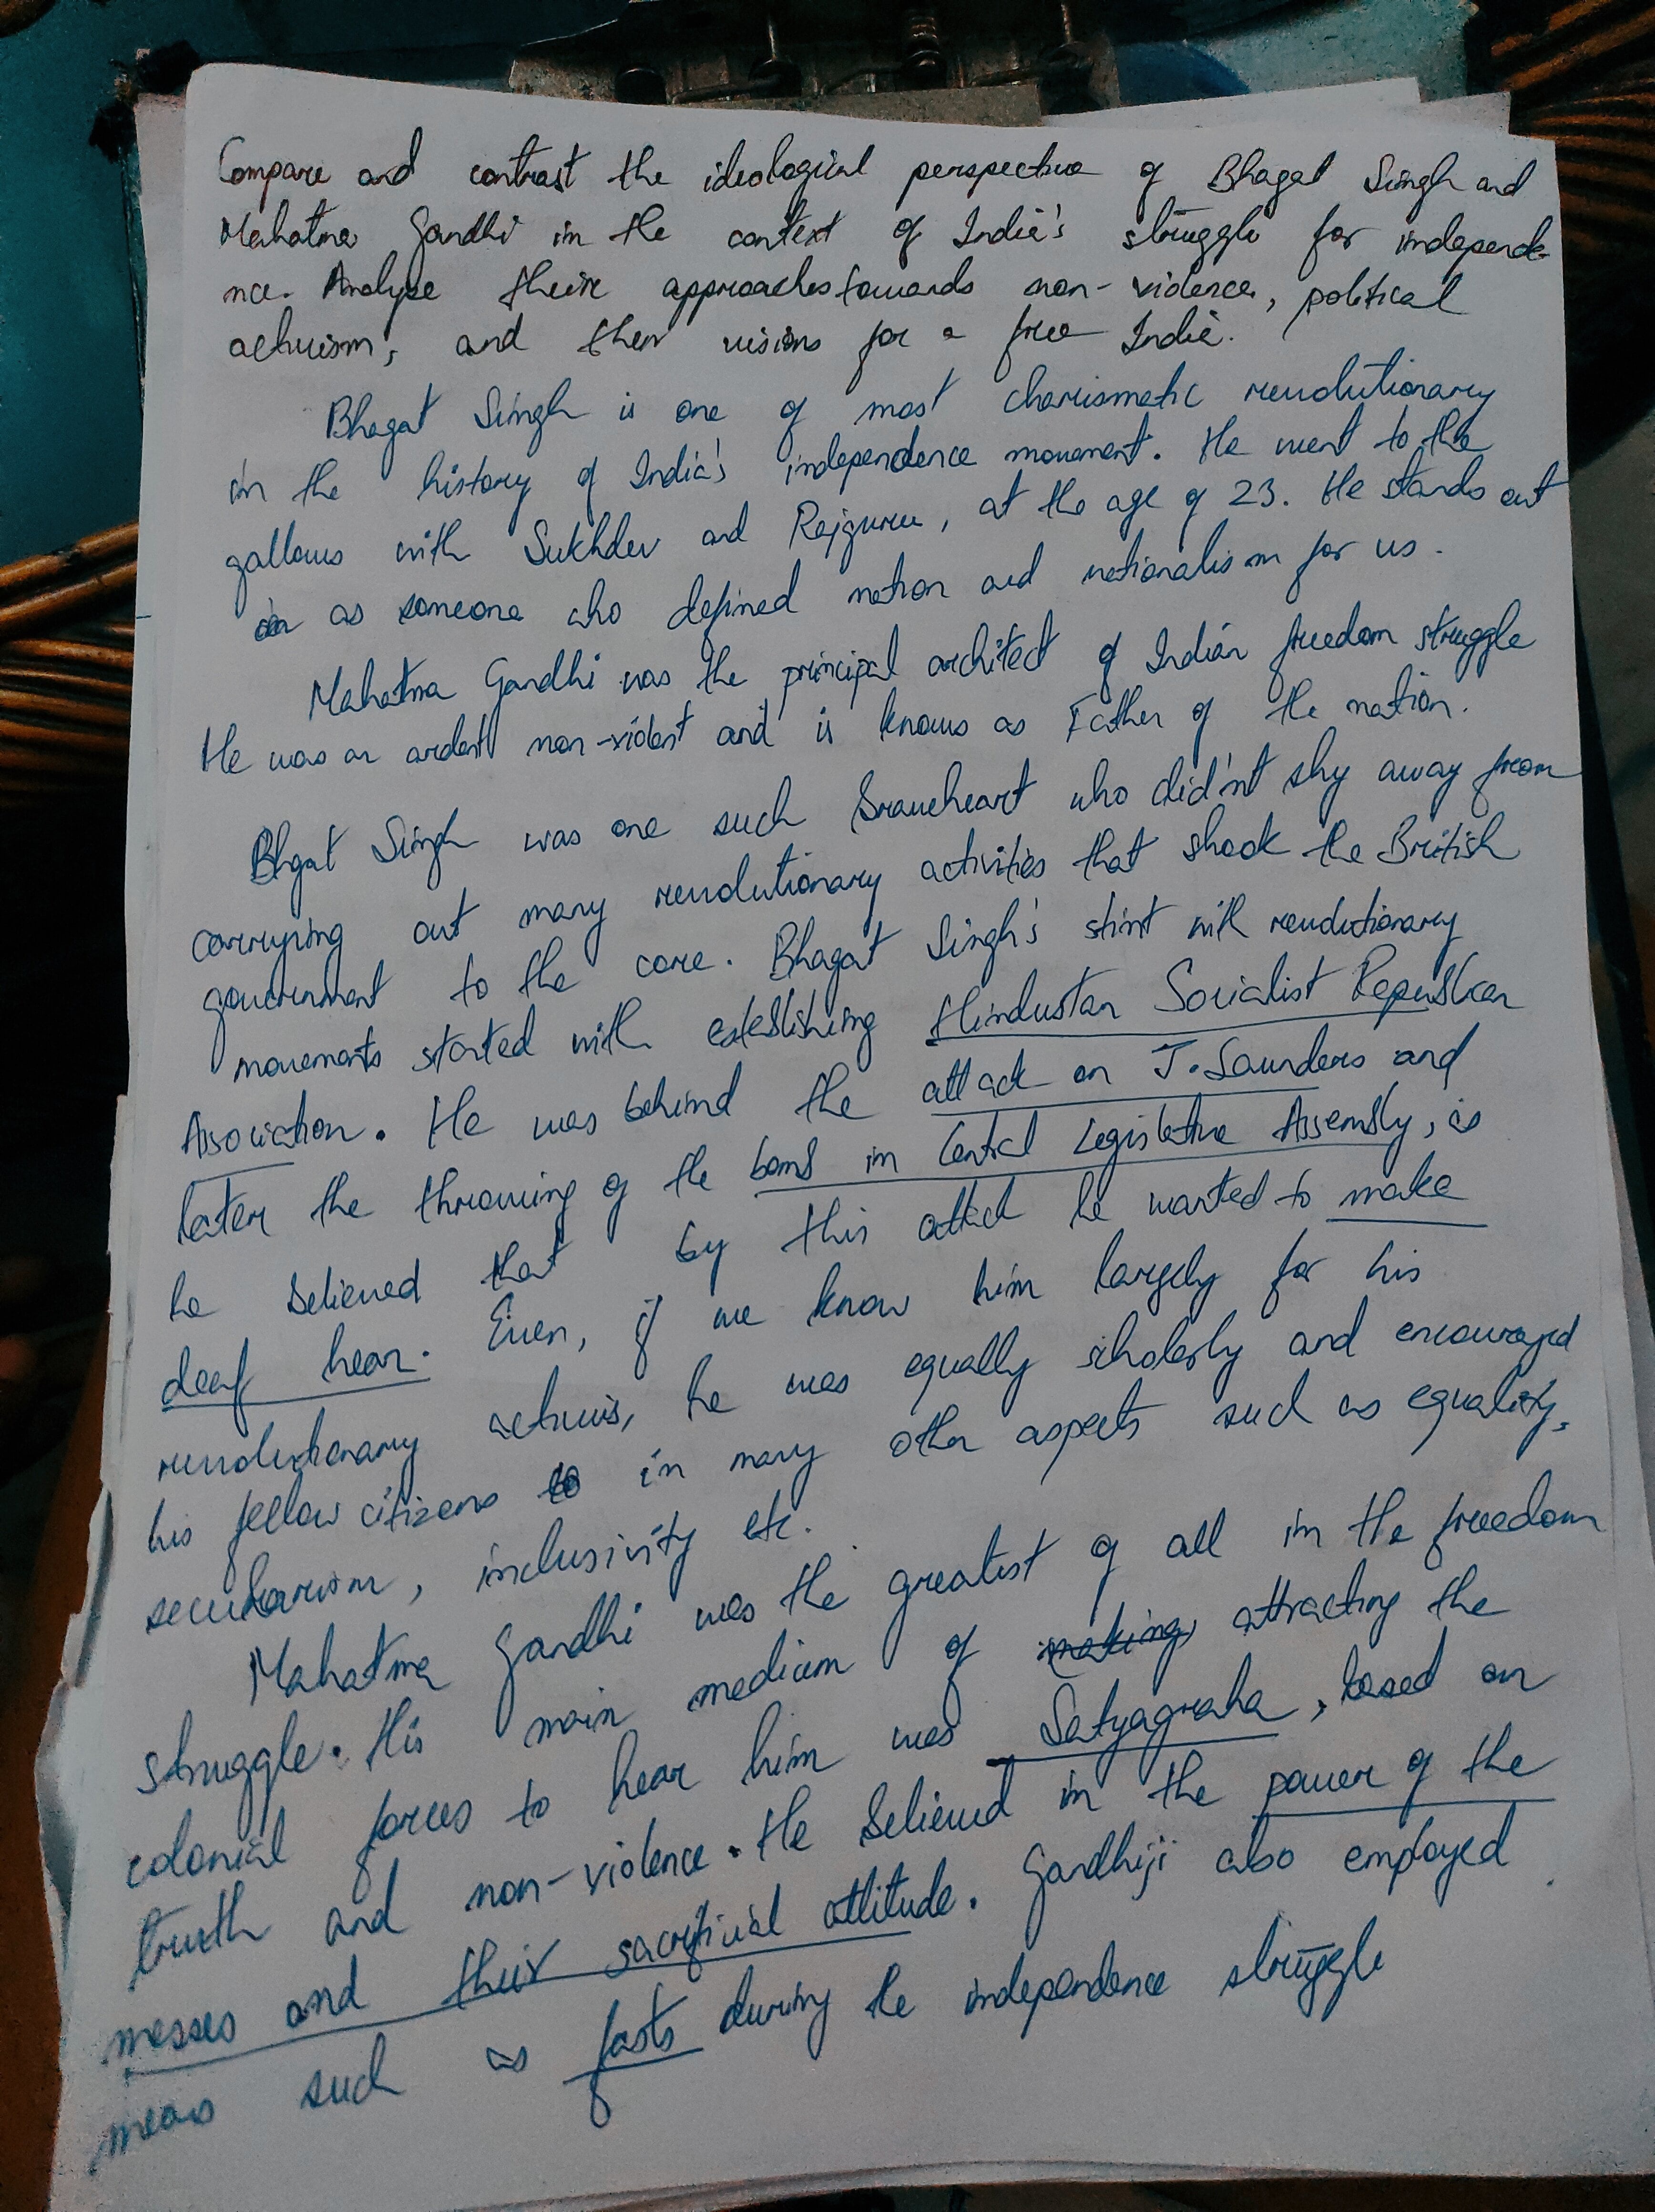 Compare and contrast the ideological perspective of Bhagat Singh and
Mahatma Gandhi in the context of India's struggle for independe-
nce. Analyse their approaches towards non-violence, political
activism, and their visions for a free India.
Bhagat Singh is one of most charismatic revolutionary
in the history of India's independence movement. He went to the
gallows with Sukhdev and Rajguru, at the age of 23. He stands out
as someone who defined nation and nationalism for us.
Mahatma Gandhi was the principal architect of Indian freedom struggle
He was an ardent non-violent and is knows as Father of the nation.
Bhgat Singh was one such braveheart who did'nt shy away from
carrying out many revolutionary activities that shook the British
government to the core. Bhagat Singh's stint with revolutionary
movements started with establishing Hindustan Socialist Republican
Association. He was behind the attack on J. Saunders and
later the throwing of the bomb in Central Legislative Assembly, as
he believed that by this attack he wanted to make
deaf hear. Even, if we know him largely for his
revolutionary activis, he was equally scholarly and encouraged
his fellow citizens in many other aspects such as equality,
secularism, inclusivity etc.
Mahatma Gandhi was the greatest of all in the freedom
struggle. His main medium of making attracting the
colonial forces to hear him was Satyagraha, based on
truth and non-violence. He believed in the power of the
masses and their sacrificial attitude. Gandhiji also employed
means such as fasts during the independence struggle